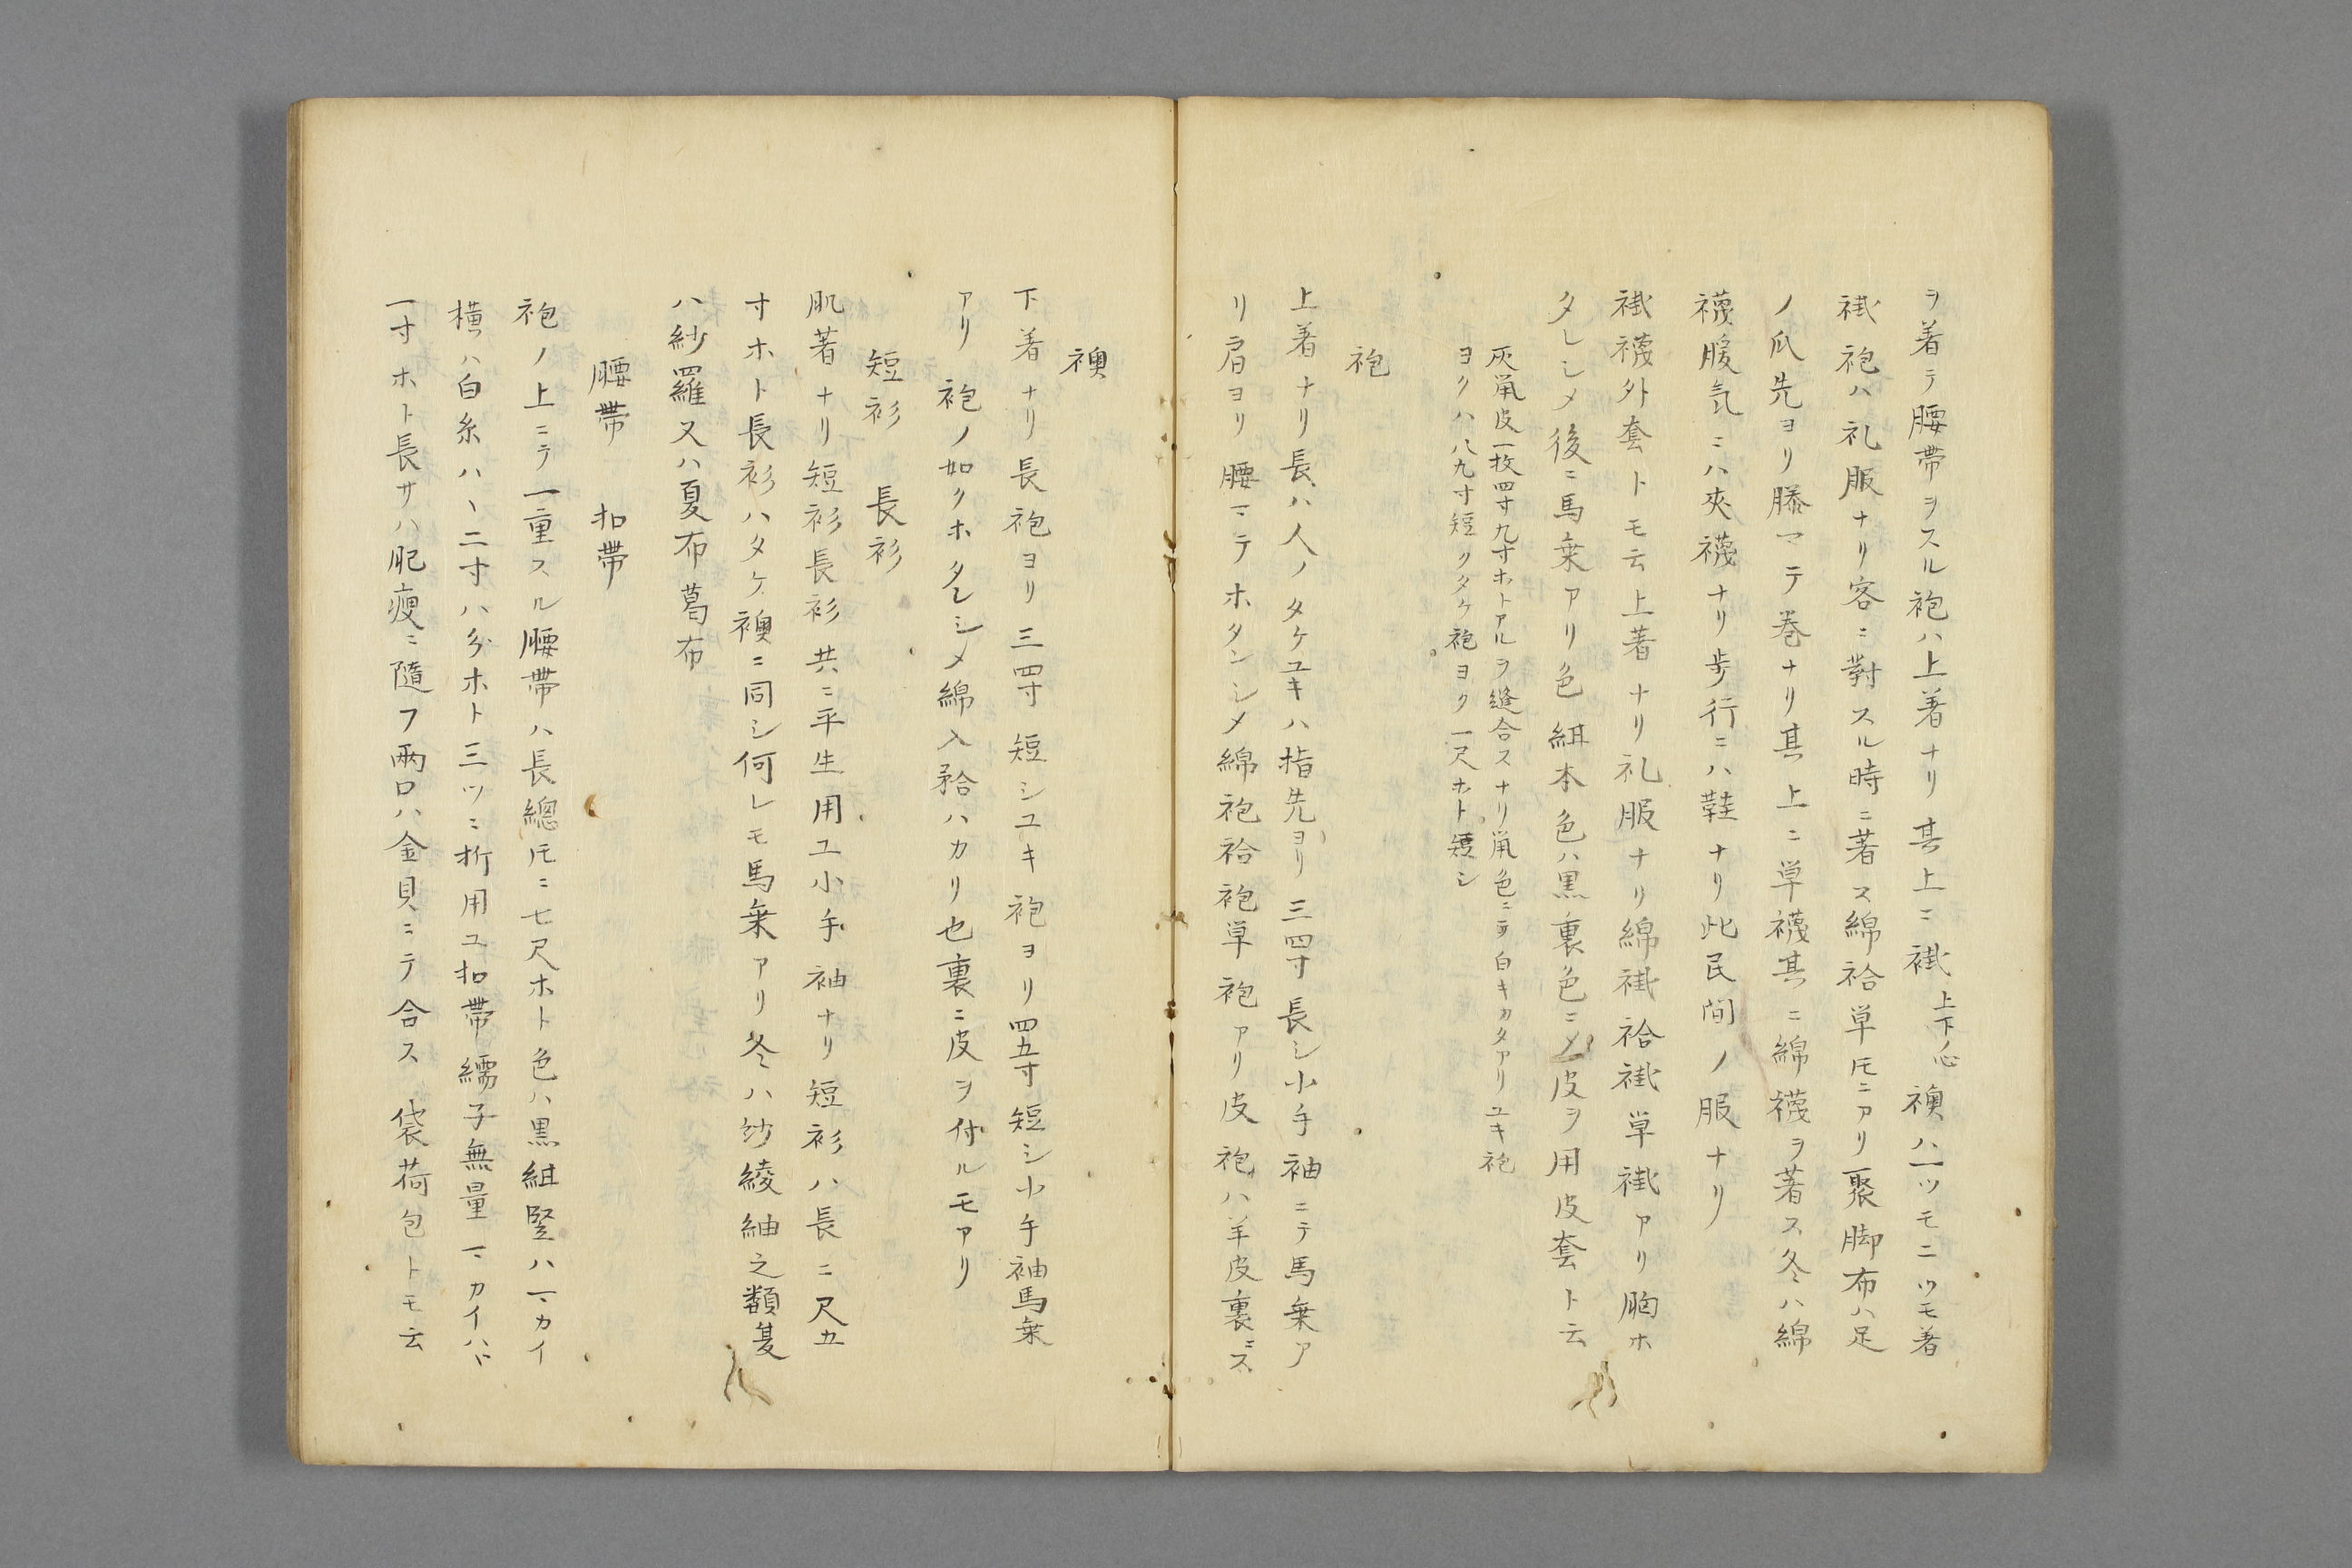 ヲ着テ腰帯ヲスル袍ハ上着ナリ其上ニ褂上下心襖ハ一ツモ二ツモ着
褂袍ハ礼服ナリ客ニ對スル時ニ著ス綿袷単𪜈ニアリ聚脚布ハ足
ノ爪先ヨリ膝マテ巻ナリ其上ニ単襪其ニ綿襪ヲ著ス冬ハ綿
襪暖気ニハ夾襪ナリ歩行ニハ鞋ナリ此民間ノ服ナリ
褂襪外套トモ云上著ナリ礼服ナリ綿褂袷褂単褂アリ胸ホ
タレシメ後ニ馬乗アリ色紺本色ハ黒裏色ニ〆皮ヲ用皮套ト云
灰鼠皮一枚四寸九寸ホトアルヲ縫合スナリ鼠色ニテ白キカタアリユキ袍
ヨクハ八九寸短クタケ袍ヨク一尺ホト短シ
袍
上着ナリ長ハ人ノタケユキハ指先ヨリ三四寸長シ小手袖ニテ馬乗ア
リ肩ヨリ腰マテホタンシメ綿袍袷袍単袍アリ皮袍ハ羊皮裏ニス
襖
下着ナリ長袍ヨリ三四寸短シユキ袍ヨリ四五寸短シ小手袖馬乗
アリ袍ノ如クホタレシメ綿入袷ハカリ也裏ニ皮ヲ付ルモアリ
短衫 長衫
肌著ナリ短衫長衫共ニ平生用ユ小手袖ナリ短衫ハ長ニ尺五
寸ホト長衫ハタケ襖ニ同シ何レモ馬乗アリ冬ハ紗綾紬之類夏
ハ紗羅又ハ夏布葛布
腰帯 扣帯
袍ノ上ニテ一重スル腰帯ハ長總𪜈ニ七尺ホト色ハ黒紺竪ハマカイ
横ハ白糸ハヽ二寸ハ分ホト三ツニ折用ユ扣帯繻子無量マカイハヽ
一寸ホト長サハ肥痩ニ隨フ両口ハ金具ニテ合ス 袋荷包トモ云